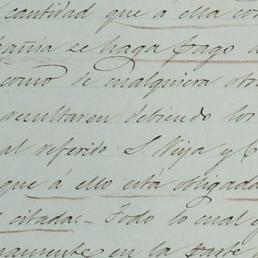 cantidad que á ella co
pañia se haga pago d
como de cualquiera otr
resultaren debiendo los
al referido S. Veija y C
que á ello está obligada
citada. Todo lo cual q
namente en la parte